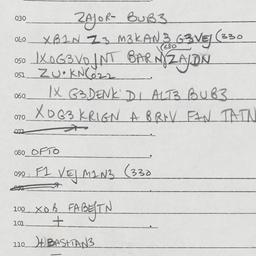 030 ZAJOR- BUB3
040 XB1N Z3 M3KAN3 G3VEJ (330
050 1XOG3VOJNT BARN ZAJDN
051 ZU•KN(022
060 1X G3DENK D1 ALT3 BUB3
070 XOG3 KRIGN A BRIV F1N TATN
080 OFTO
090 F1 VEJM1N3 (330
100 XOB FABEJTN
101 +
110 BASHTAN3